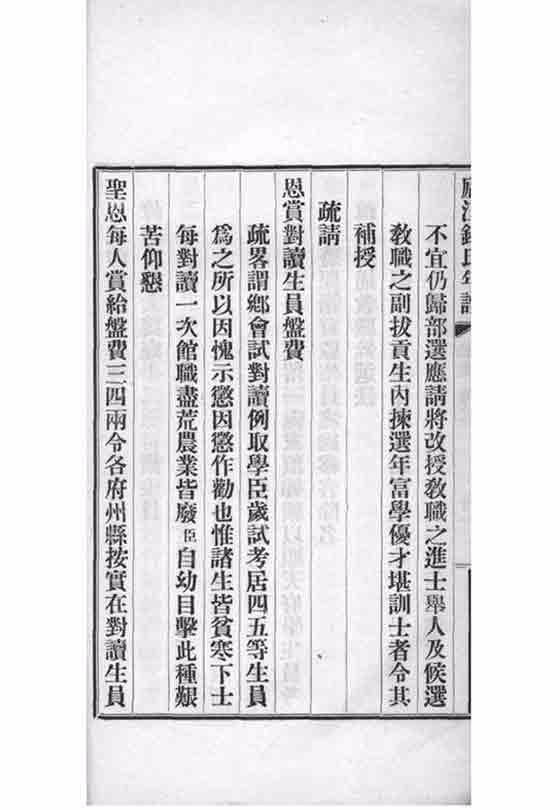 錢氏年譜
不宜仍歸部選應請將改授敎職之進士舉人及候選
敎職之副拔貢生內揀選年富學優才堪訓士者令其
補授
疏請
恩賞對讀生員盤費
疏畧謂鄉會試對讀例取學臣歲試考居四五等生員
爲之所以因愧示懲因懲作勸也惟諸生皆貧寒下士
每對讀一次館職盡荒農業皆廢臣自幼目擊此種艱
苦仰懇
聖恩每人賞給盤費三四兩令各府州縣按實在對讀生員